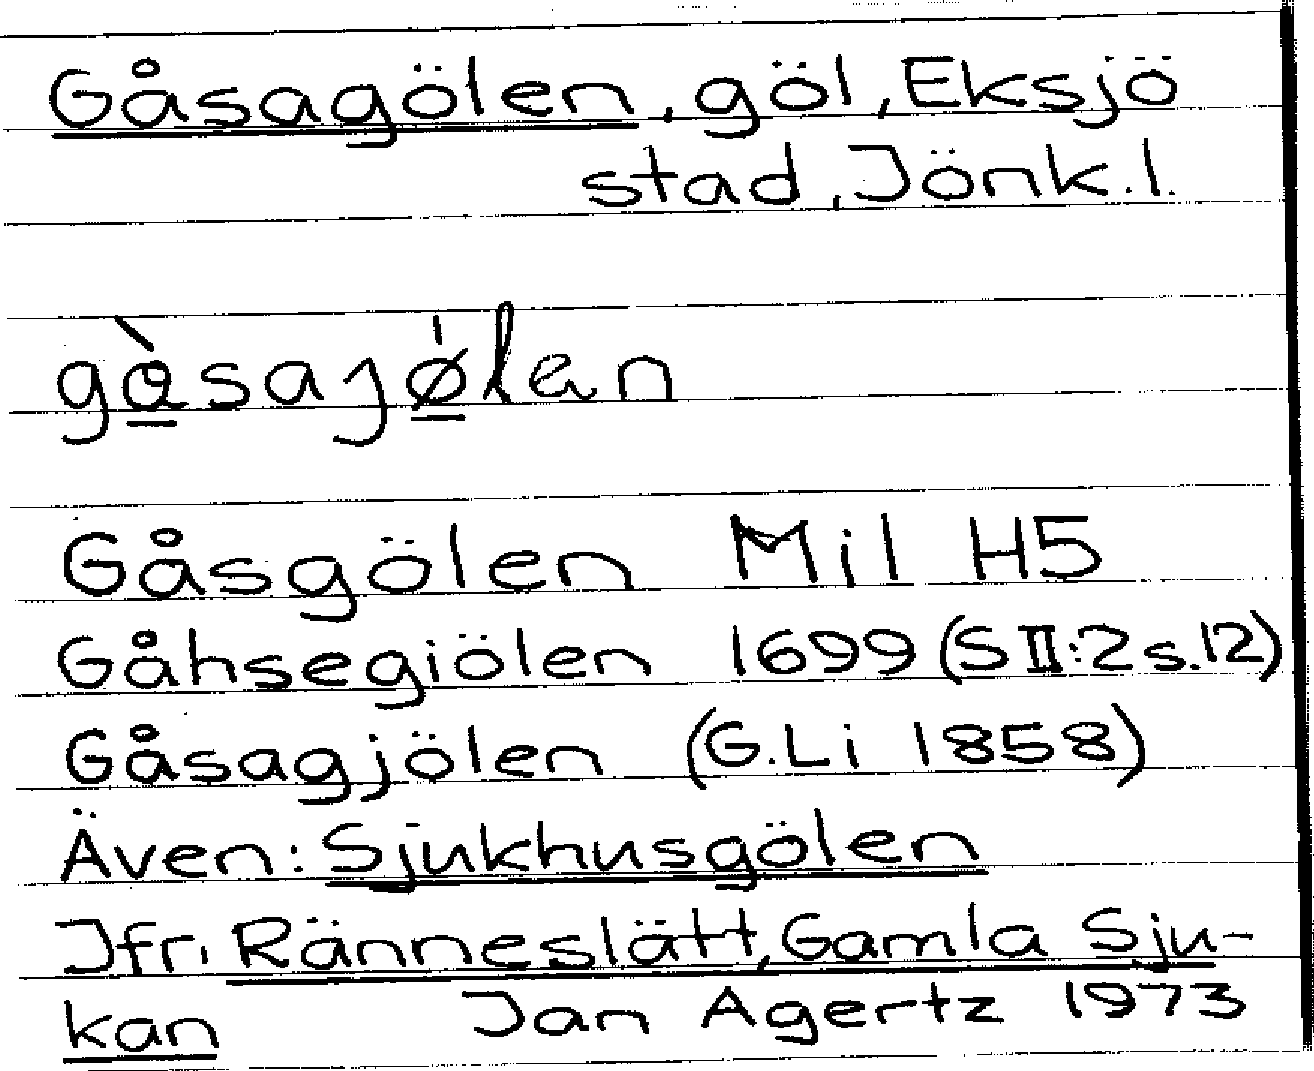 Gåsagölen, göl, Eksjö
stad, Jönk.l.
gàsajø̍len
Gåsgölen Mil H5
Gåhsegiölen 1699 (S II:2 s.12)
Gåsagjölen (G.Li 1858)
Även: Sjukhusgölen
Jfr. Ränneslätt, Gamla Sju-
kan Jan Agertz 1973